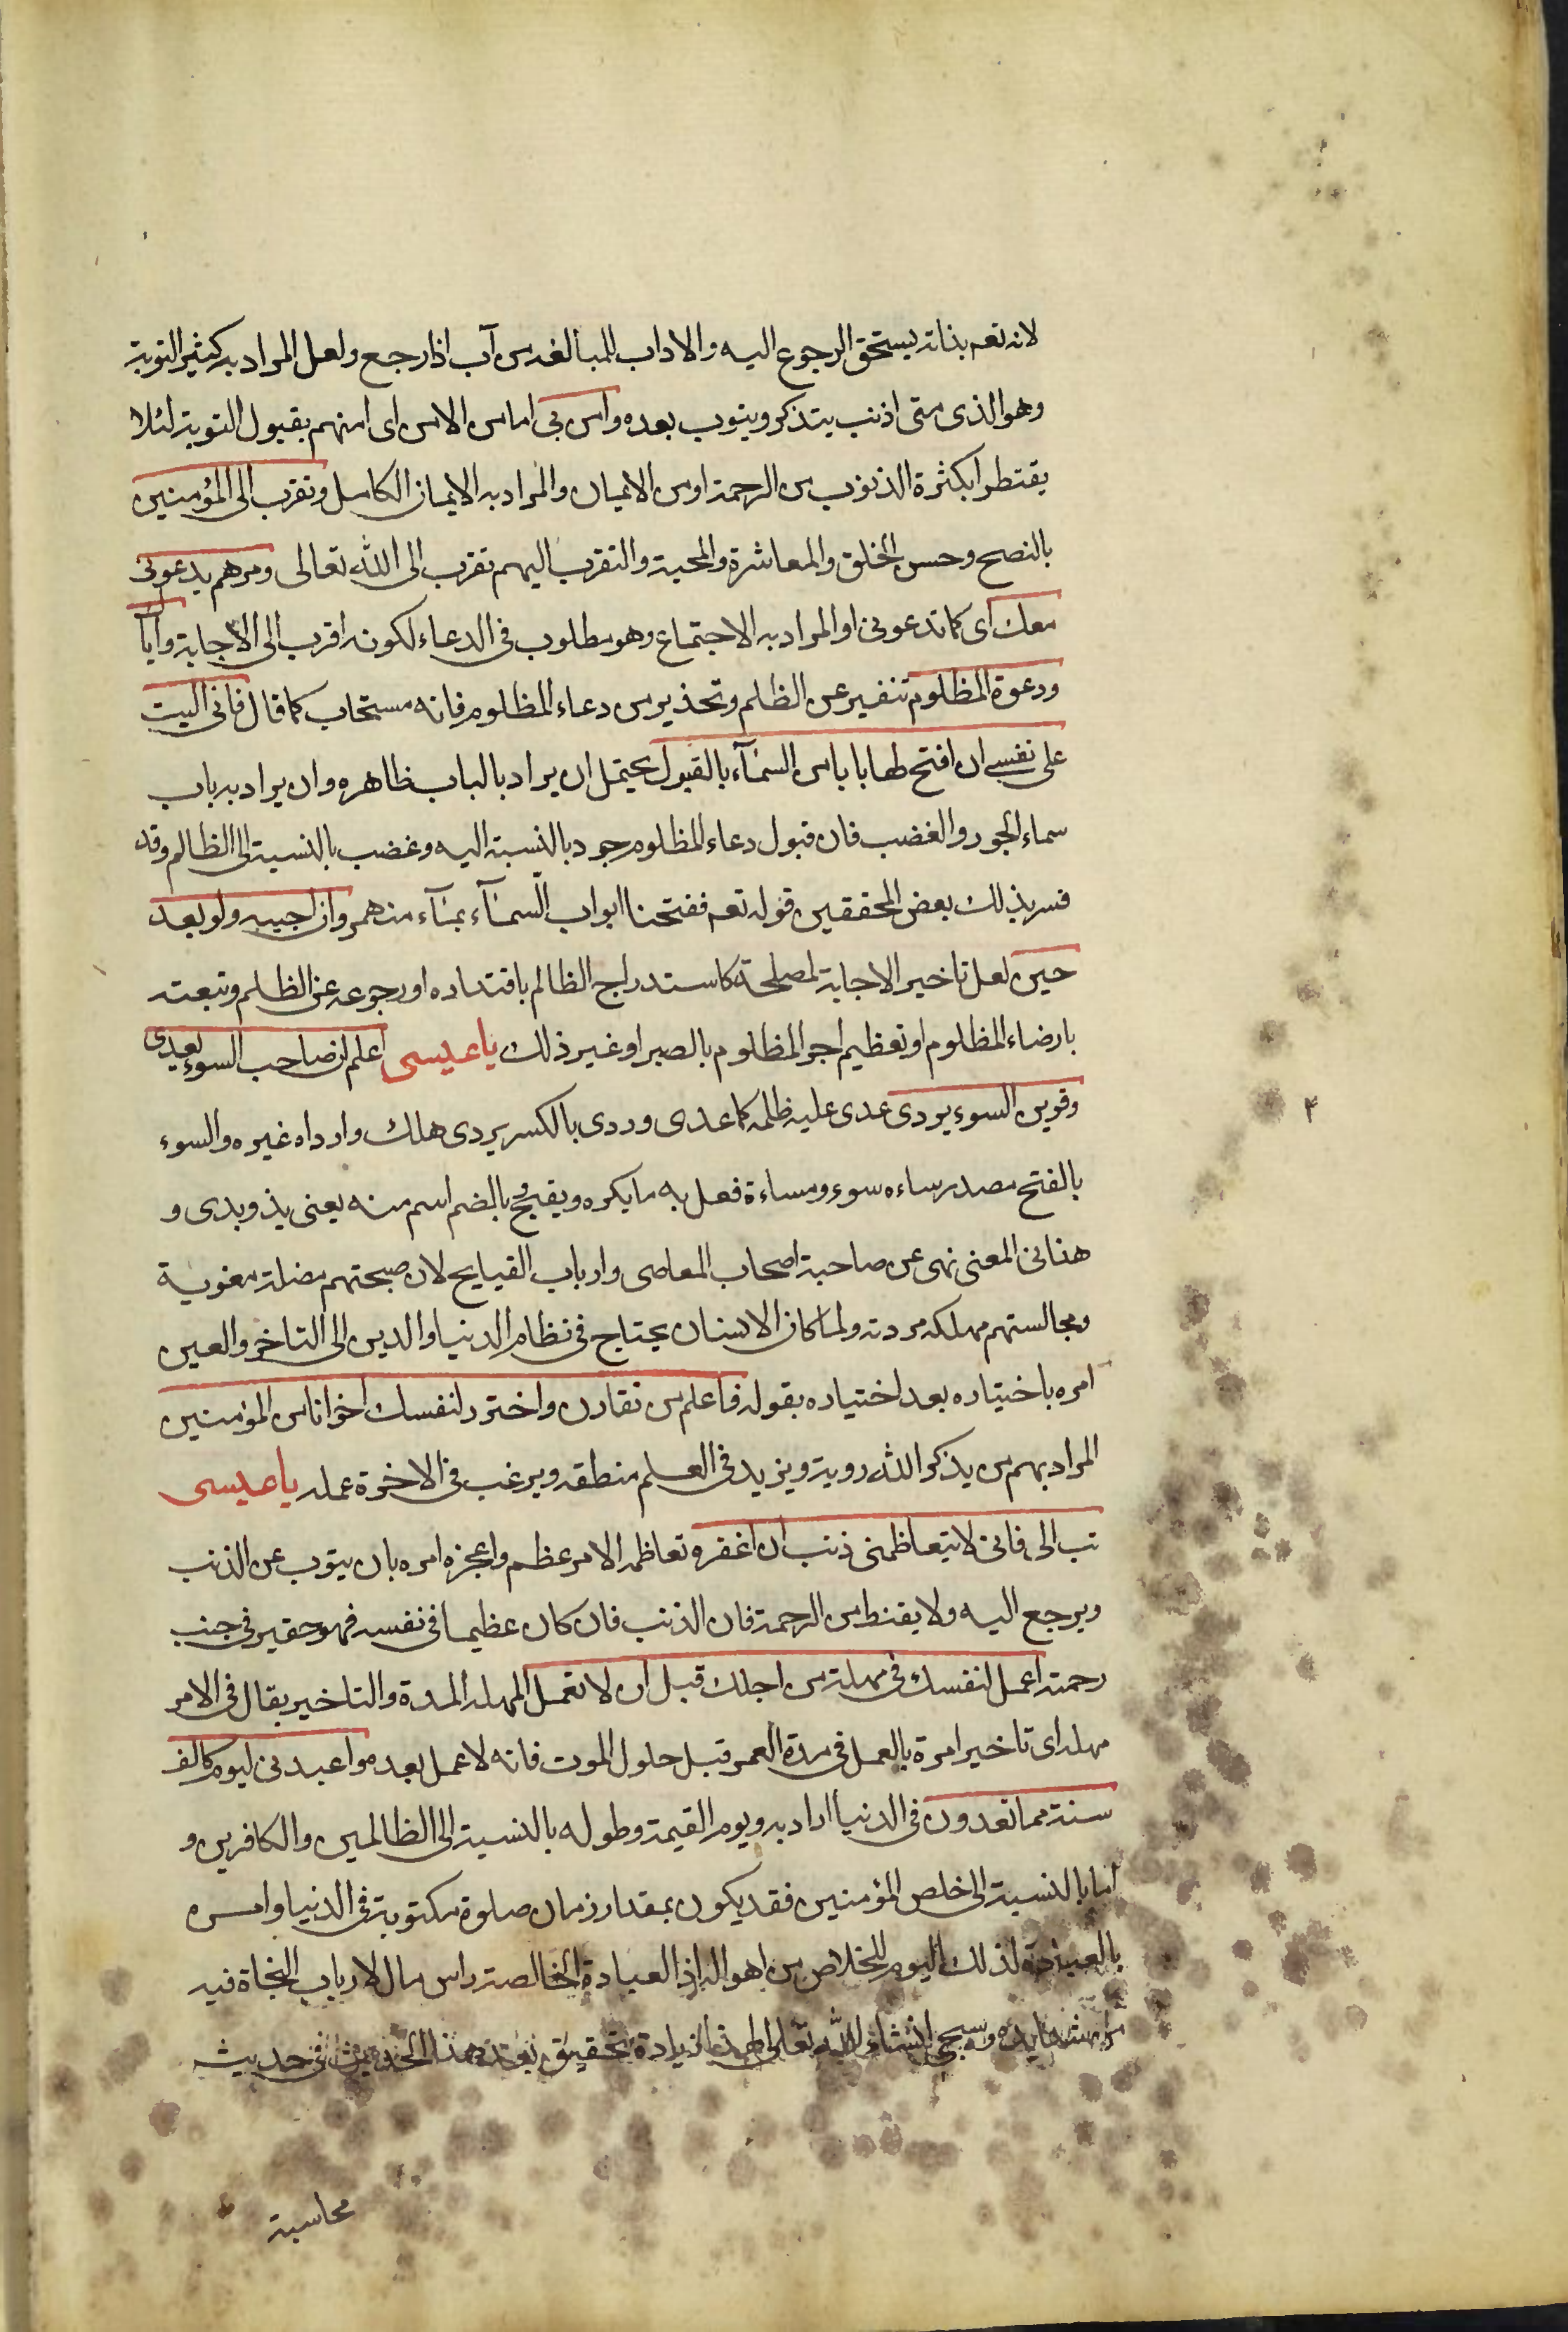 لانه تعه بذاته يستحق الرجوع اليه والاداب للمبالغه من آب اذا رجع ولعل المراد به كثير التوبة
وهو الذى متى اذنب يتذكر ويتوب بعده وامن بى اما من الامن اى امنهم بقبول التوبة لئلا
يقنطوا بكثرة الذنوب من الرحمة او من الايمان والمراد به الايمان الكامل وتقرب الى المؤمنين
بالنصح وحسن الخلق والمعاشرة والمحبة والتقرب اليهم تقرب الى الله تعالى ومرهم يدعونى
معك اى كما تدعونى او المراد به الاجتماع وهو مطلوب فى الدعاء لكونه اقرب الى الاجابة واياك
ودعوة المظلوم تنفير عن الظلم وتحذير من دعاء المظلوم فانه مستجاب كما قال فانى اليت
على نفسى ان افتح لها بابا من السمآء بالقبول يحتمل ان يراد بالباب ظاهره وان يراد به باب
سماء الجود والغضب فان قبول دعاء المظلوم جود بالنسبة اليه وغضب بالنسبة الى الظالم وقد
فسر بذلك بعض المحققين قوله تعه ففتحنا ابواب السمآء بمآء منهمر وان اجيبه ولو بعد
حين لعل تاخير الاجابة لمصلحة كاستدراج الظالم باقتداره او رجوعه عن الظلم وتبعته
بارضاء المظلوم او تعظيم اجر المظلوم بالصبر او غير ذلك يا عيسى اعلم ان صاحب السوء يعدى
وقرين السوء يردى عدى عليه ظلمه كاعدى وردى بالكسر يردى هلك وارداه غيره والسوء
۴
بالفتح مصدر ساءه سوء ومساءة فعل به ما يكره ويقبح وبالضم اسم منه يعنى يذو ويدى و
هذا فى المعنى نهى عن صاحبة اصحاب المعاصى وارباب القبايح لان صبحتهم مضلة مغوية
ومجالستهم مهلكه مردته ولما كان الانسان يحتاج فى نظام الدنيا والدين الى التاخر والعين
امره باختياره بعد اختياره بقوله فاعلم من تقارن واختر لنفسك اخوانا من المؤمنين
المراد بهم من يذكر الله روية ويزيد فى العلم منطقه ويرغب فى الاخرة عمله يا عيسى
تب الى فانى لا يتعاظمنى ذنب ان اغفره تعاظمه الامر عظم واعجزه امره بان يتوب عن الذنب
ويرجع اليه ولا يقنط من الرحمة فان الذنب فان كان عظيما فى نفسه فهو حقير فى جنب
رحمته اعمل لنفسك فى مهلة من اجلك قبل ان لا تعمل المهله المدة والتاخير يقال فى الامر
مهله اى تاخير امرة بالعمل فى مدة العمر قبل حلول الموت فانه لا عمل بعده واعبدنى ليوم كالف
سنة مما تعدون فى الدنيا اراد به ويوم القيمة وطوله بالنسبة الى الظالمين والكافرين و
اما بالنسبة الى خلص المؤمنين فقد يكون بمقدار زمان صلوة مكتوبة فى الدنيا وامره
بالعبادة لذلك اليوم للخلاص من اهواله اذ العبادة الخالصة راس مال لارباب النجاة فيه
من شدايده وسيجئ انشاء الله تعالى لهذا زيادة تحقيق بعد هذا الحديث فى حديث
محاسبة